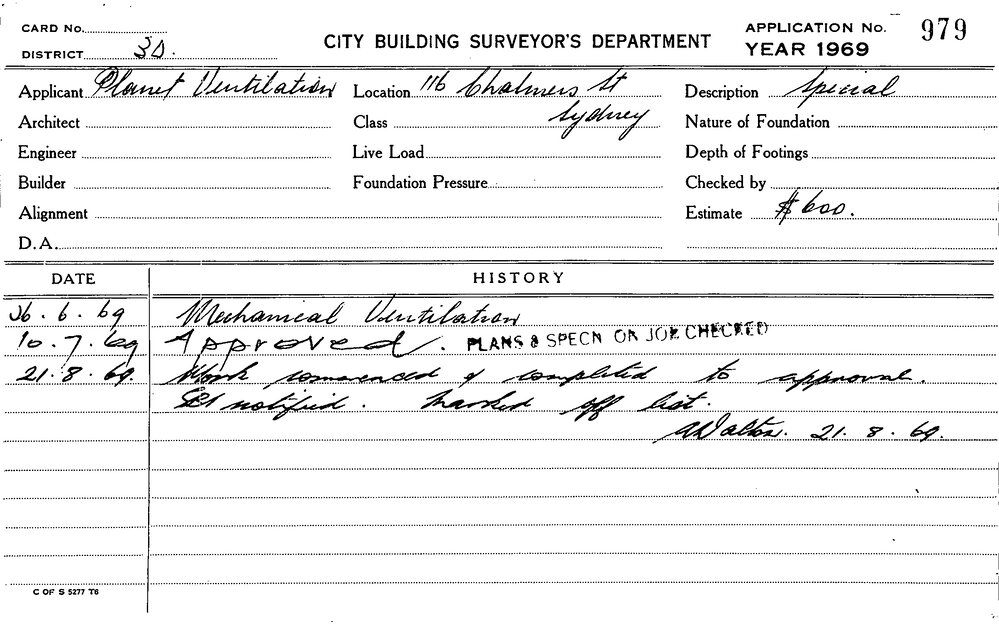 CARD No.
DISTRICT 3D.
CITY BUILDING SURVEYOR'S DEPARTMENT
APPLICATION No. 979
YEAR 1969
Applicant Planet Ventilation Location 116 Chalmers St Description Special
Architect Class Sydney Nature of Foundation
Engineer Live Load Depth of Footings
Builder Foundation Pressure Checked by
Alignment Estimate $600.
D.A.
DATE HISTORY
26.6.69 Mechanical Ventilation
10.7.69 Approved. PLANS & SPECN ON JOB CHECKED
21.8.69. Work commenced & completed to approval.
notified. Marked off list.
21.8.69.
C OF S 5277 T6